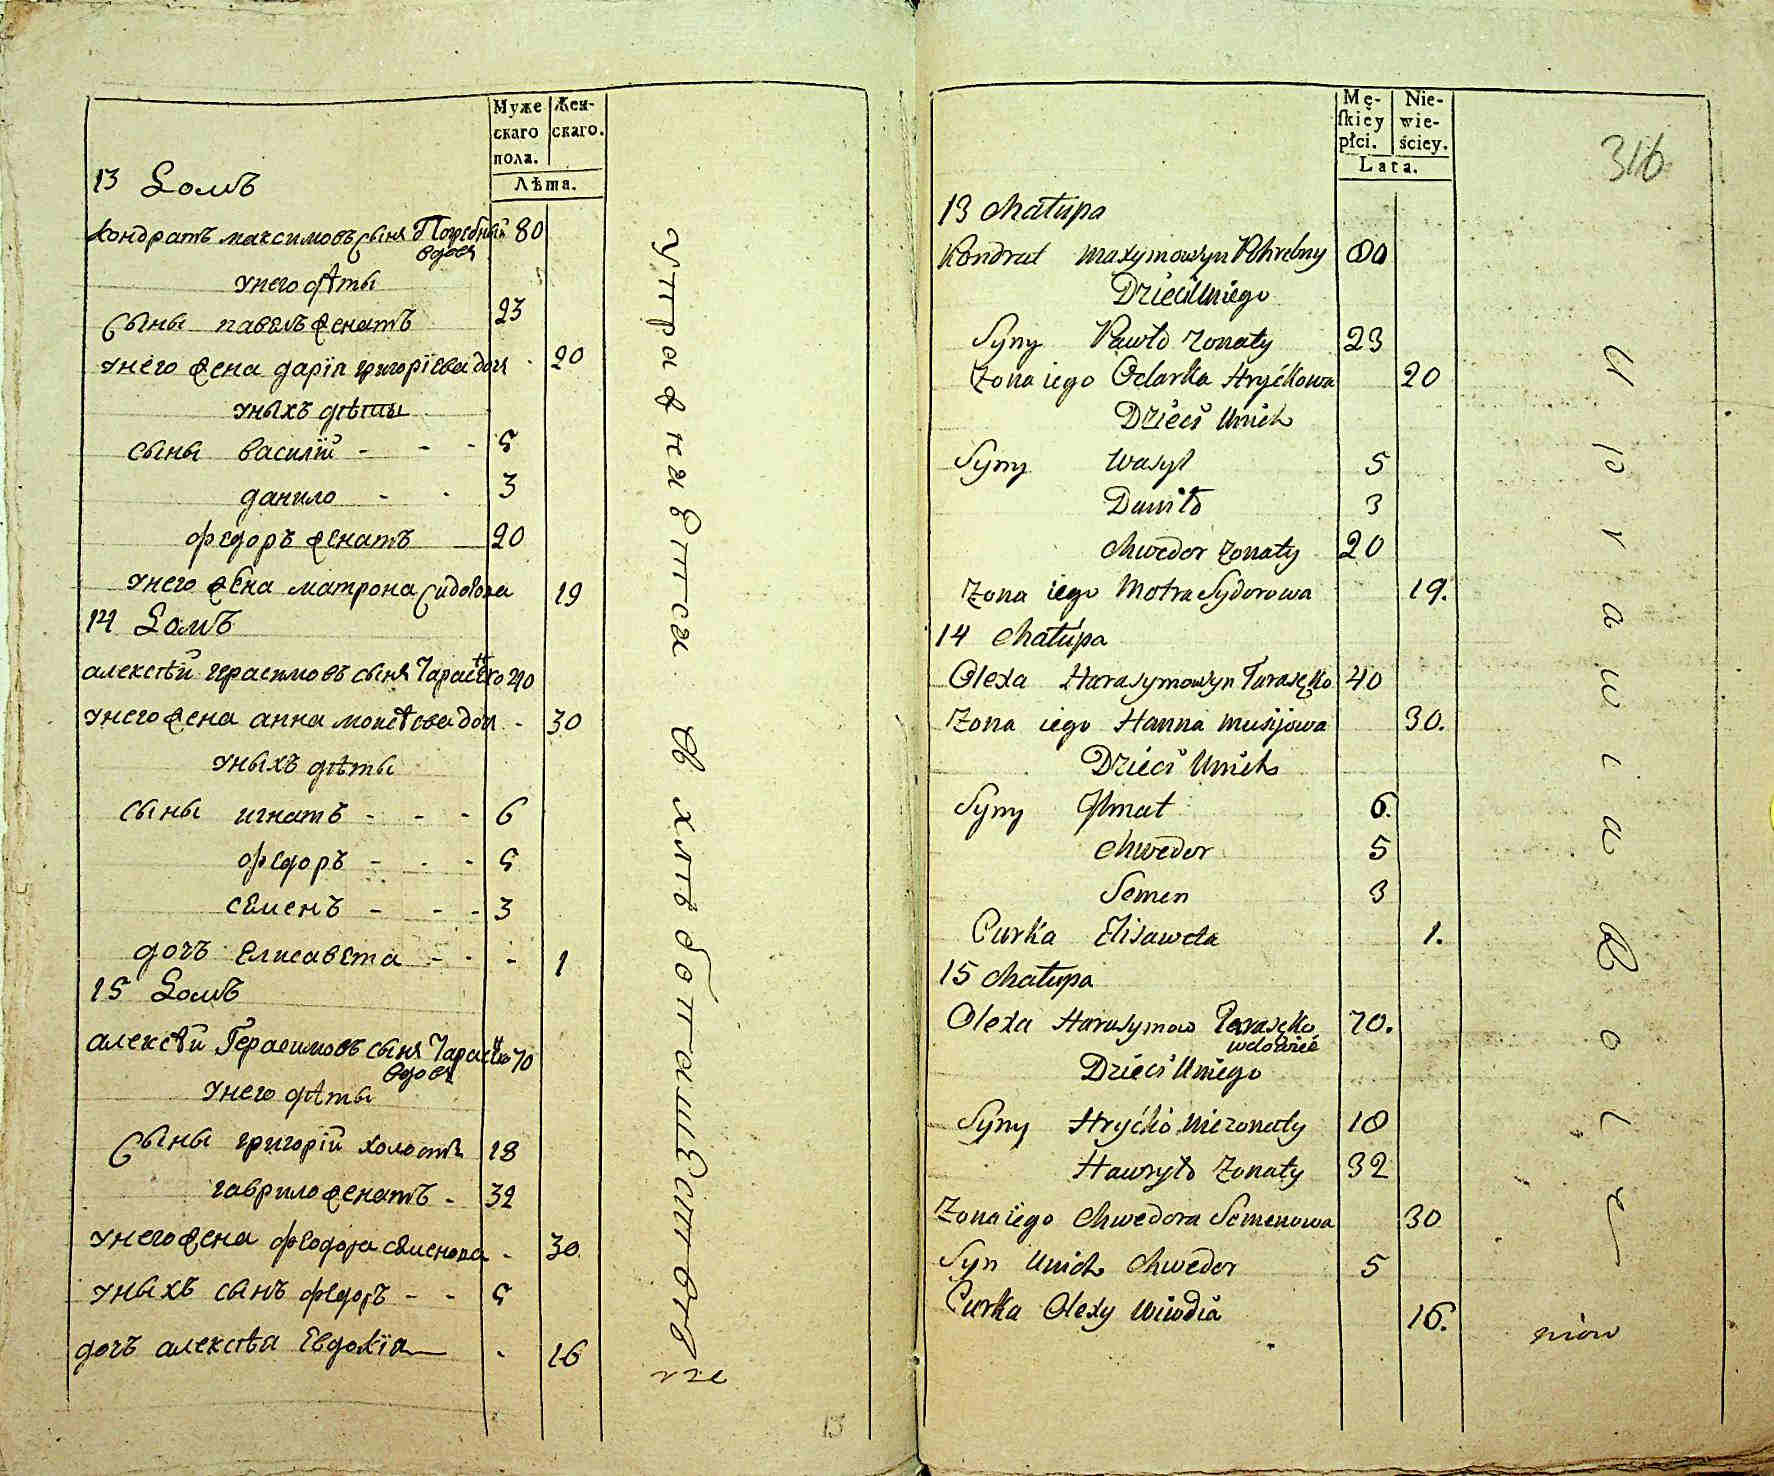 Муже
скаго
пола.
Жен-
скаго.
Лѣта.
13 Домъ
Кондратъ максимовъ сынъ Погребный 80
вдовъ
унего дѣты
Сыны павелъ женатъ 23
унего жена дарїя григорїева доч - 20
уныхъ дѣты
сыны василїй - - - 5
данило - - 3
федоръ женатъ 20
унего жена матрона сидорова 19
14 Домъ
алексѣй герасимовъ сынъ Тарасенко 40
унего жена анна моисѣева доч - 30
уныхъ дѣты
сыны игнатъ - - - 6
федоръ - - - 5
семенъ - - - 3
дочъ Елисавета - - - 1
15 Домъ
алексѣй Герасимовъ сынъ Тарасенко 70
вдовъ
унего дѣты
Сыны григорїй холостъ 18
гаврило женатъ - 32
унего жена феодора семенова - 30
уныхъ сынъ федоръ - - 5
дочъ алексѣя Евдокїя - 16
упражняютса в хлѣбопашествѣ
13
Mę-
skiey
płci.
Nie-
wie-
ściey.
Lata.
316
13 Chałupa
Kondrat Maxymow syn Pohrebny 80
Dzieci Uniego
Syny Pawło Zonaty 23
Zona iego Odarka Hryćkowa 20
Dzieci Unich
Syny Wasyl 5
Daniło 3
Chwedor Zonaty 20
Zona iego Motra Sydorowa 19.
14 Chałupa
Olexa Harasymow syn Tarasęko 40
Zona iego Hanna Musijowa 30.
Dzieci Unich
Syny Ihnat 6.
Chwedor 5
Semen 3
Curka Elisaweta 1.
15 Chałupa
Olexa Harasymow Tarasęko 70.
wdowiec
Dzieci Uniego
Syny Hryćko Niezonaty 18
Hawryło Zonaty 32
Zona iego Chwedora Semenowa 30
Syn Unich Chwedor 5
Curka Olexy Wiwdia 16.
Uprawia Role